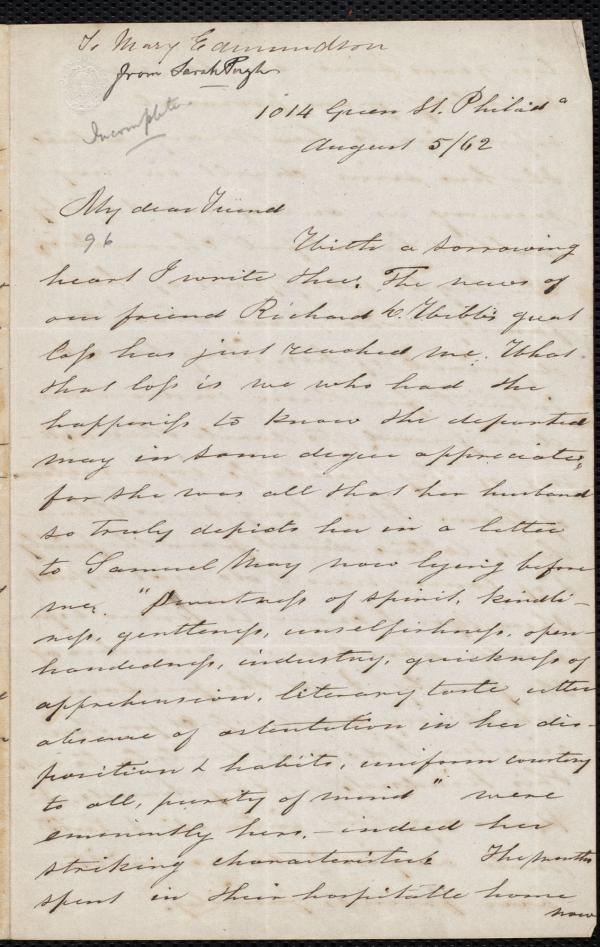 To Mary Edmundson
from Sarah Pugh
Incomplete.
1014 Green St. Philad a
August 5/62
My dear Friend
96
With a sorrowing
heart I write thee. The news of
our friend Richard D. Webb's great
loss has just reached me. What
that loss is we who had the
happiness to know the departed
may in some degree appreciate,
for she was all that her husband
so truly depicts her in a letter
to Samuel May now lying before
me. "Sweetness of spirit, kindli-
ness, gentleness, unselfishness, open-
handedness, industry, quickness of
apprehension, literary taste, utter
absence of ostentation in her dis-
position & habits, uniform courtesy
to all, purity of mind" were
eminently hers, – indeed her
striking characteristics. The months
spent in their hospitable home
now